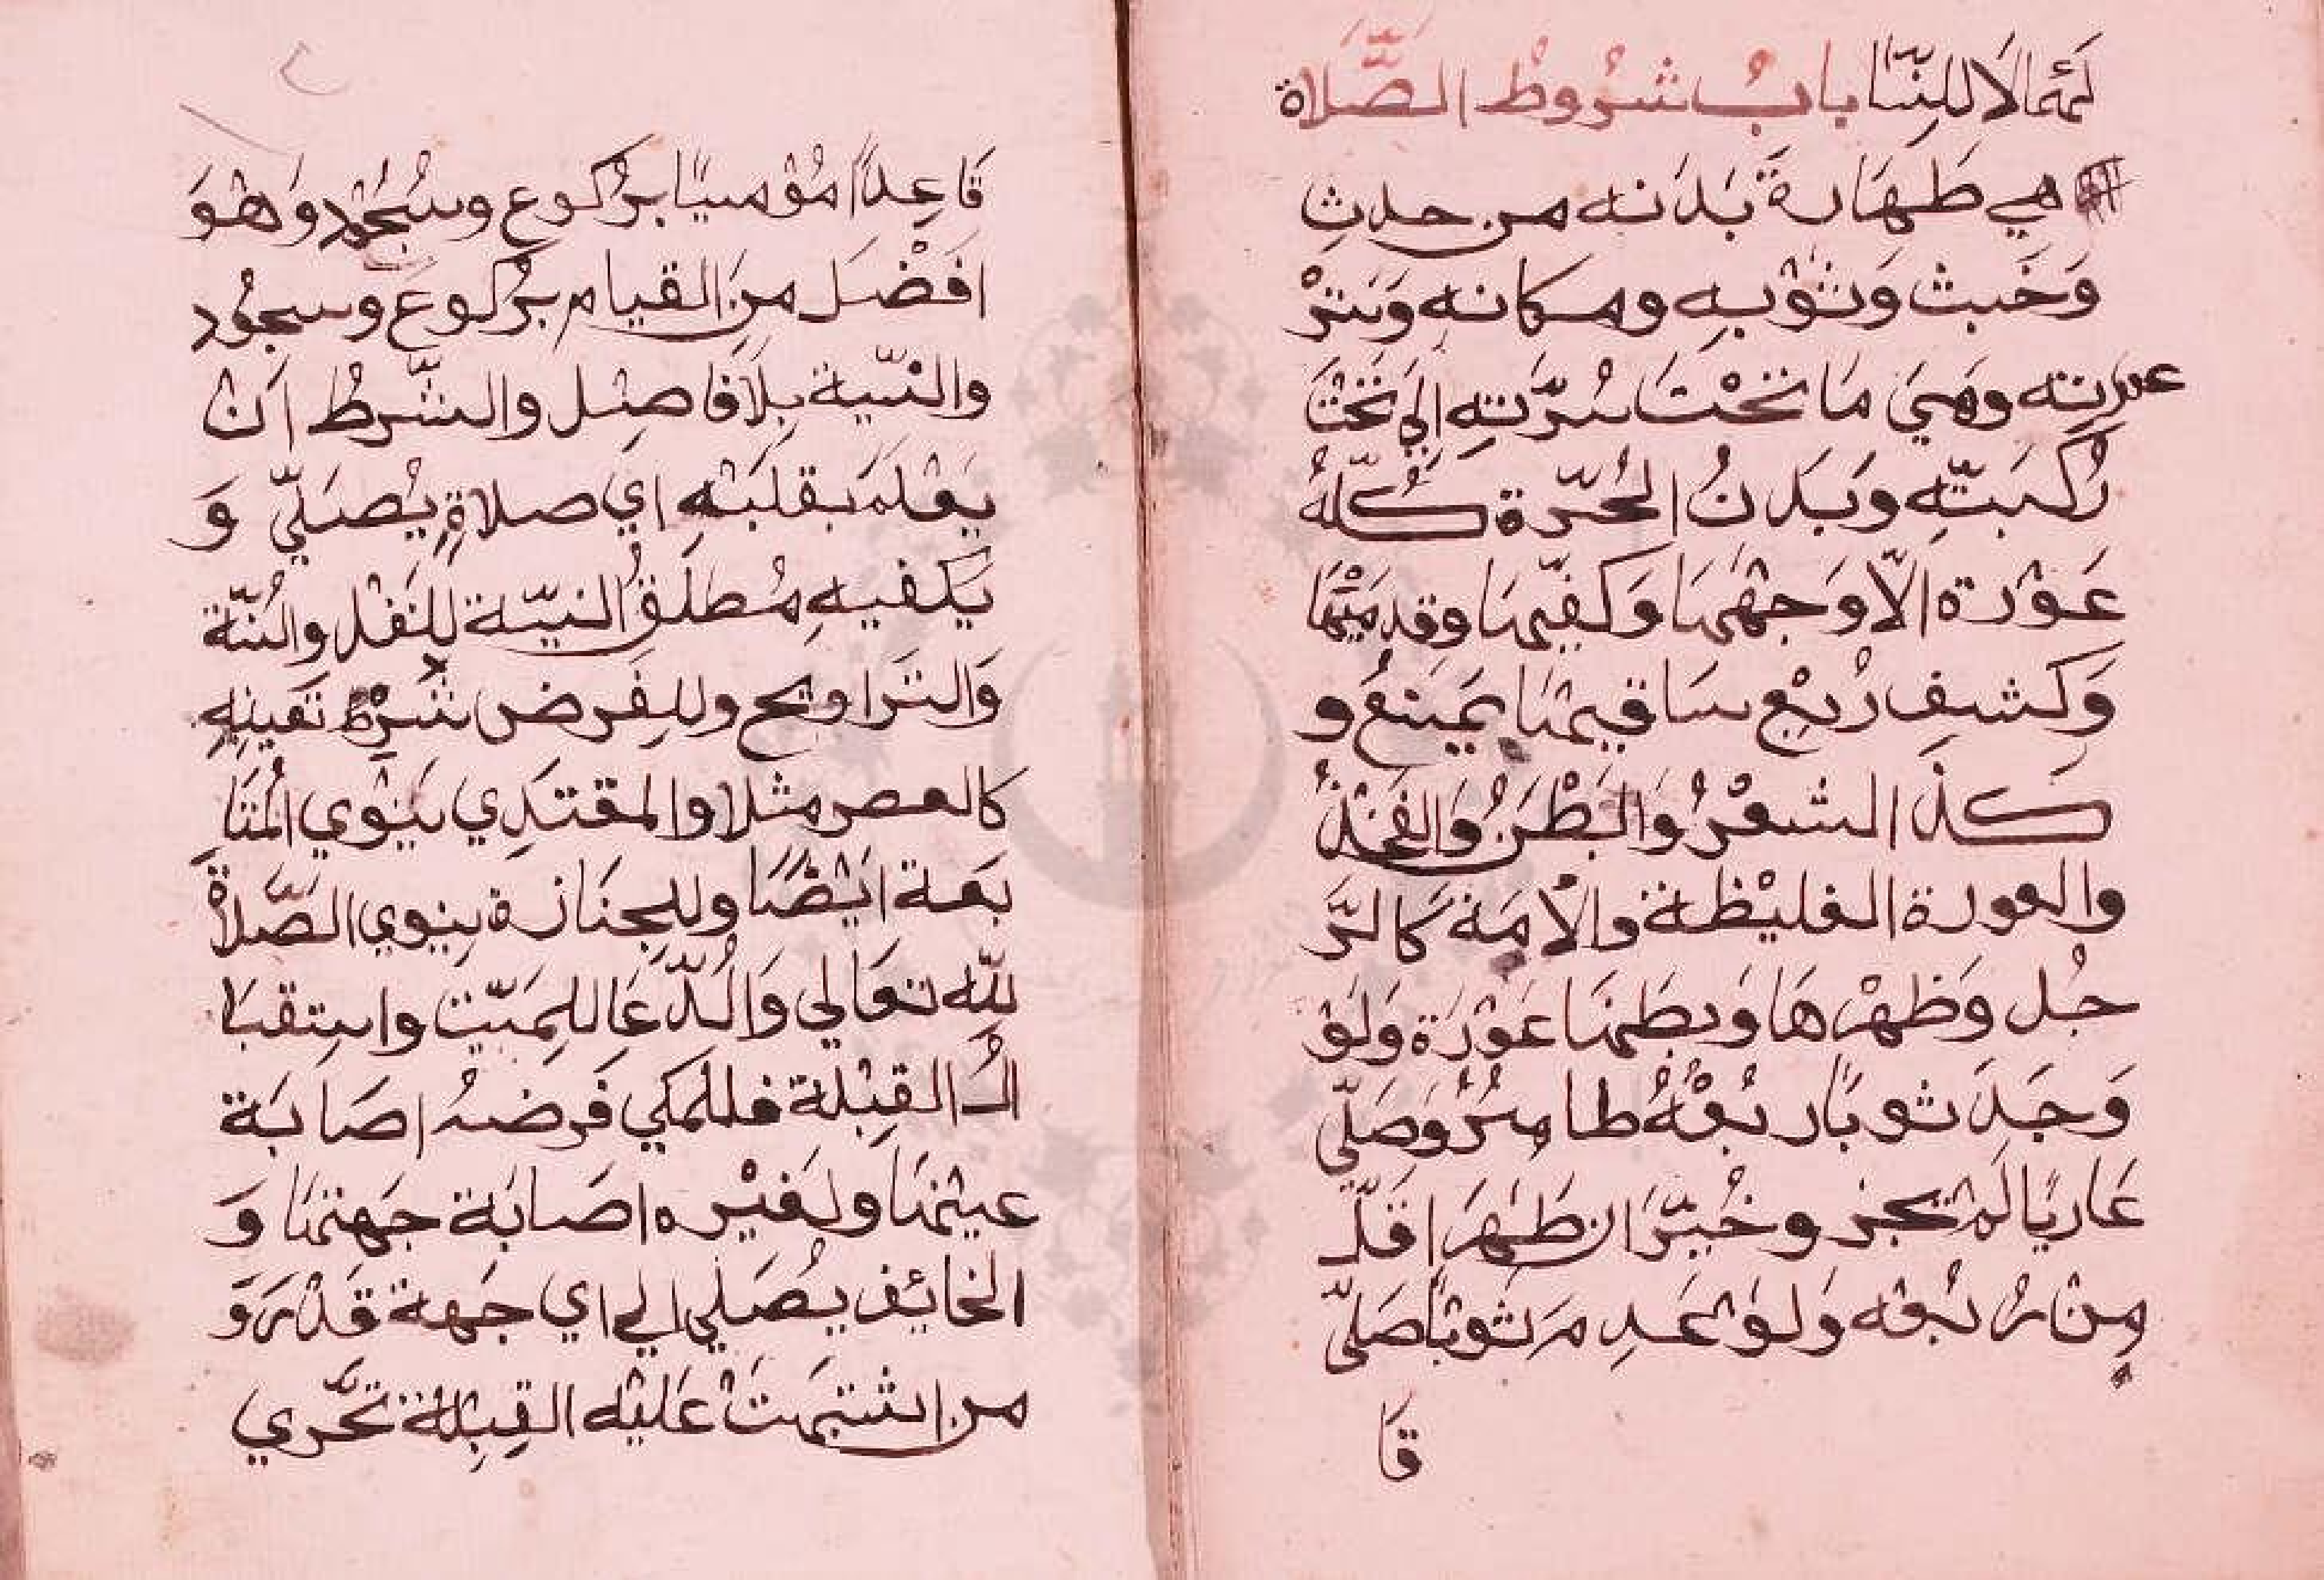 لهما لا للنسا باب شروط الصلاة
هي طهارة بدنه من حدث
وخبث وثوبه ومكانه وستر
عورته وهي ما تحت سرته الى تحت
ركبته وبدن الحرة كله
عورة الا وجهها وكفيها وقدميها
وكشف ربع ساقيها يمنع و
كذا الشعر والبطن والفخذ
والعورة الغليظة والامة كالر
جل وظهرها وبطنها عورة ولو
وجد ثوبا ربعه طاهر وصلي
عاريا لم تجز وخير ان طهر اقل
من ربعه ولو عدم ثوبا صلي
قا
قاعدا موميا بركوع وسجود وهو
افضل من القيام بركوع وسجود
والنية بلا فاصل والشرط ان
يعلم بقلبه اي صلاة يصلي و
يكفيه مطلق النية للنفل والسنة
والتراويح وللفرض شرط تعينه
كالعصر مثلا والمقتدي ينوي المتا
بعة ايضا وللجنازة ينوي الصلاة
لله تعالي والدعا للميت واستقبا
ل القبلة فللمكي فرضه اصابة
عينها ولغيره اصابة جهتها و
الخائف يصلي الي اي جهة قدر و
من اشتبهت عليه القبلة تحري